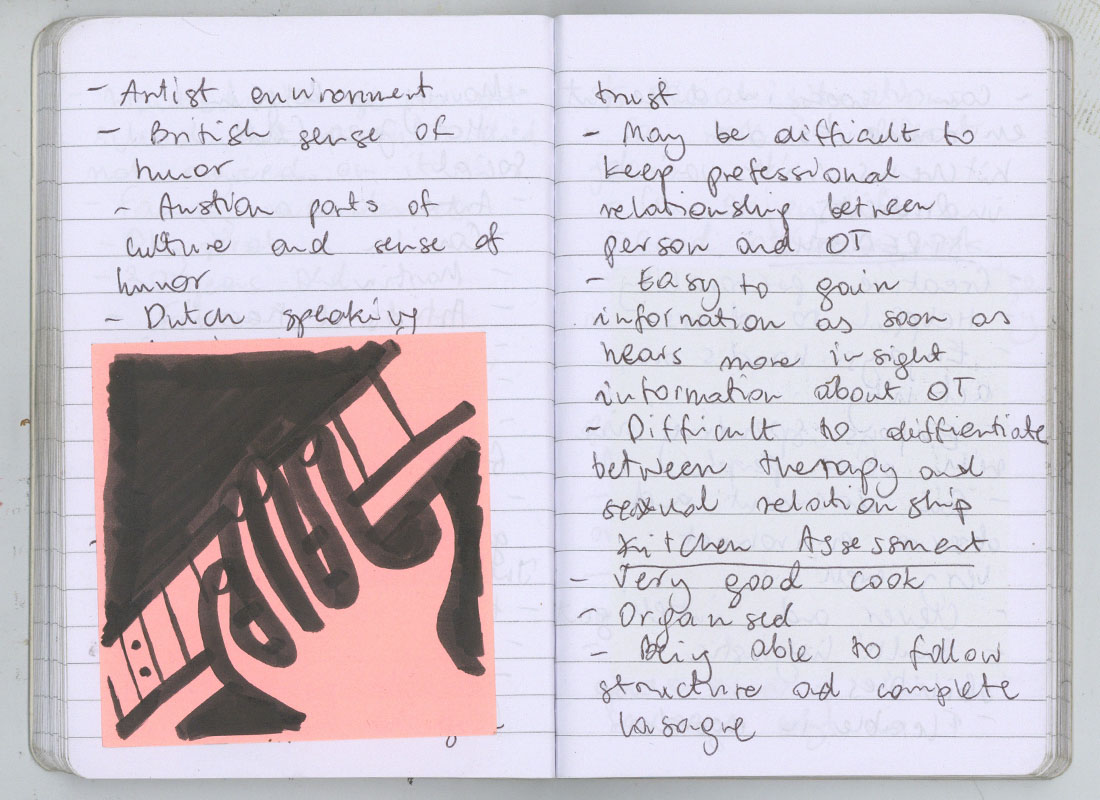 - Artist environment
- British sense of
humor
- Austrian parts of
culture and sense of
humor
- Dutch speaking
trust
- May be difficult to
keep professional
relationship between
person and OT
- Easy to gain
information as soon as
hears more insight
information about OT
- Difficult to diffientiate
between therapy and
sexual relationship
Kitchen Assessment
- Very good cook
- Organised
- Being able to follow
structure and complete
lasagne